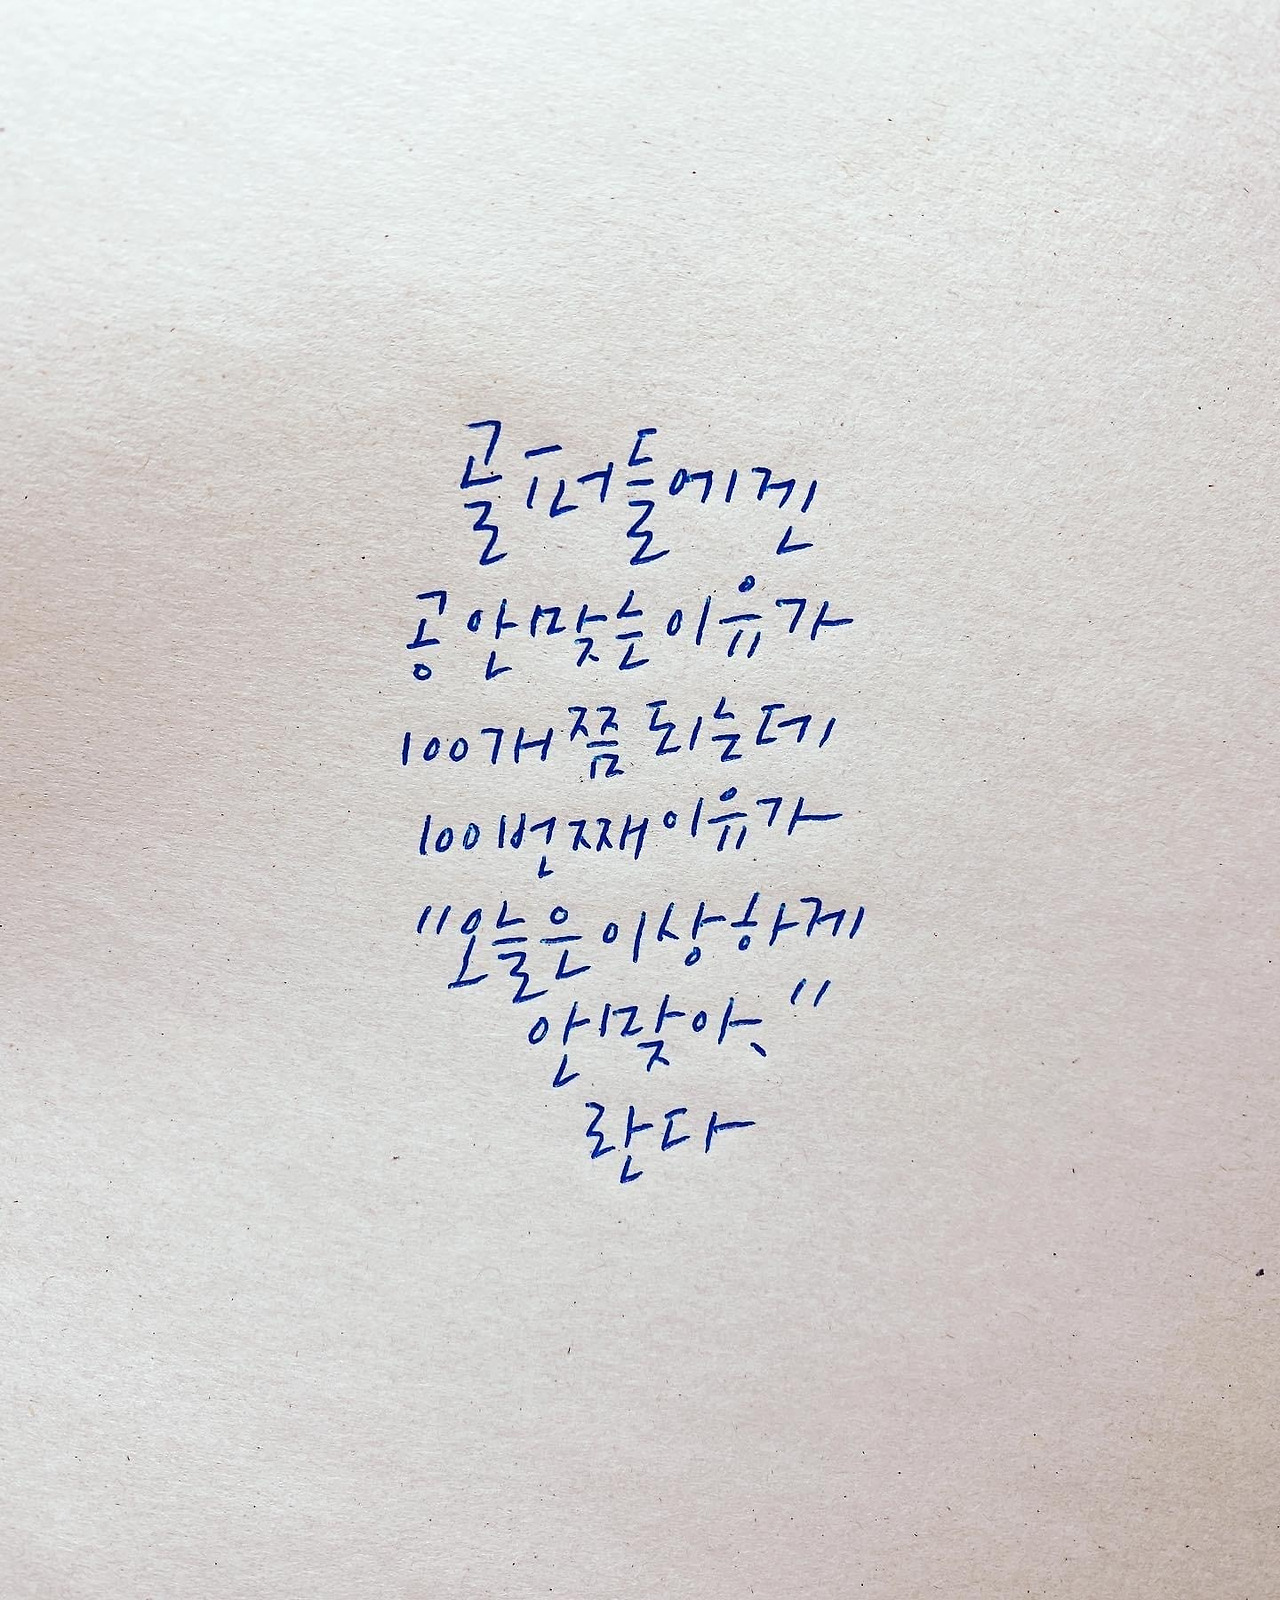 골퍼들에겐
공 안 맞는 이유가
100개쯤 되는데
100번째 이유가
"오늘은 이상하게
안 맞아、"
란다